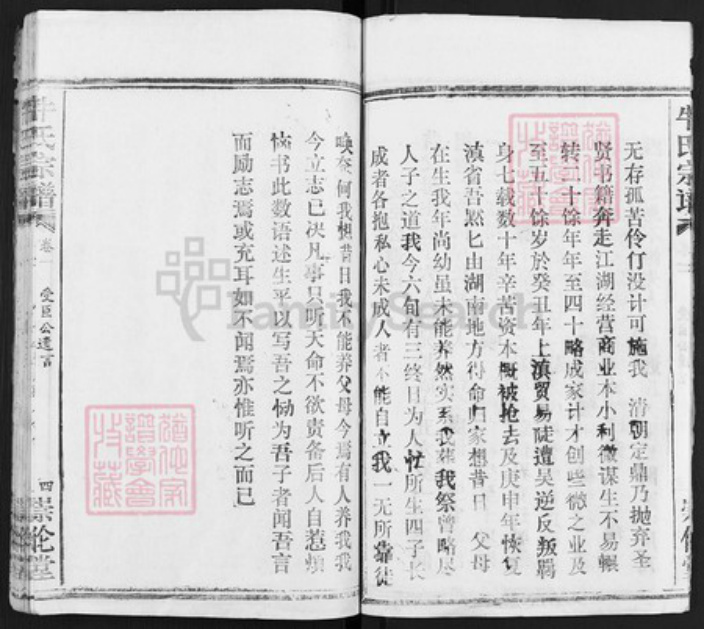 无存孤苦伶仃没计可施我 清朝定鼎乃抛弃圣
贤书籍奔走江湖经营商业本小利微谋生不易辗
转二十馀年年至四十略成家计才创些微之业及
至五十馀岁於癸丑年上滇贸易陡遭吴逆反叛羁
身七载数十年辛苦资本概被抢去及庚申年恢复
滇省吾黙匕由湖南地方得命归家想昔日 父母
在生我年尚幼虽未能养然实系我葬我祭曾略尽
人子之道我今六旬有三终日为人忙所生四子长
成者各抱私心未成人者不能自立我一无所靠徒
唤奈何我想昔日我不能养父母今焉有人养我我
今立志已决凡事只听天命不欲责备后人自惹烦
恼书此数语述生平以写吾之恸为吾子者闻吾言
而励志焉或充耳如不闻焉亦惟听之而已
牛氏宗谱
卷一
爱臣公遗言
四
崇伦堂
牛氏宗谱
FamilySearch